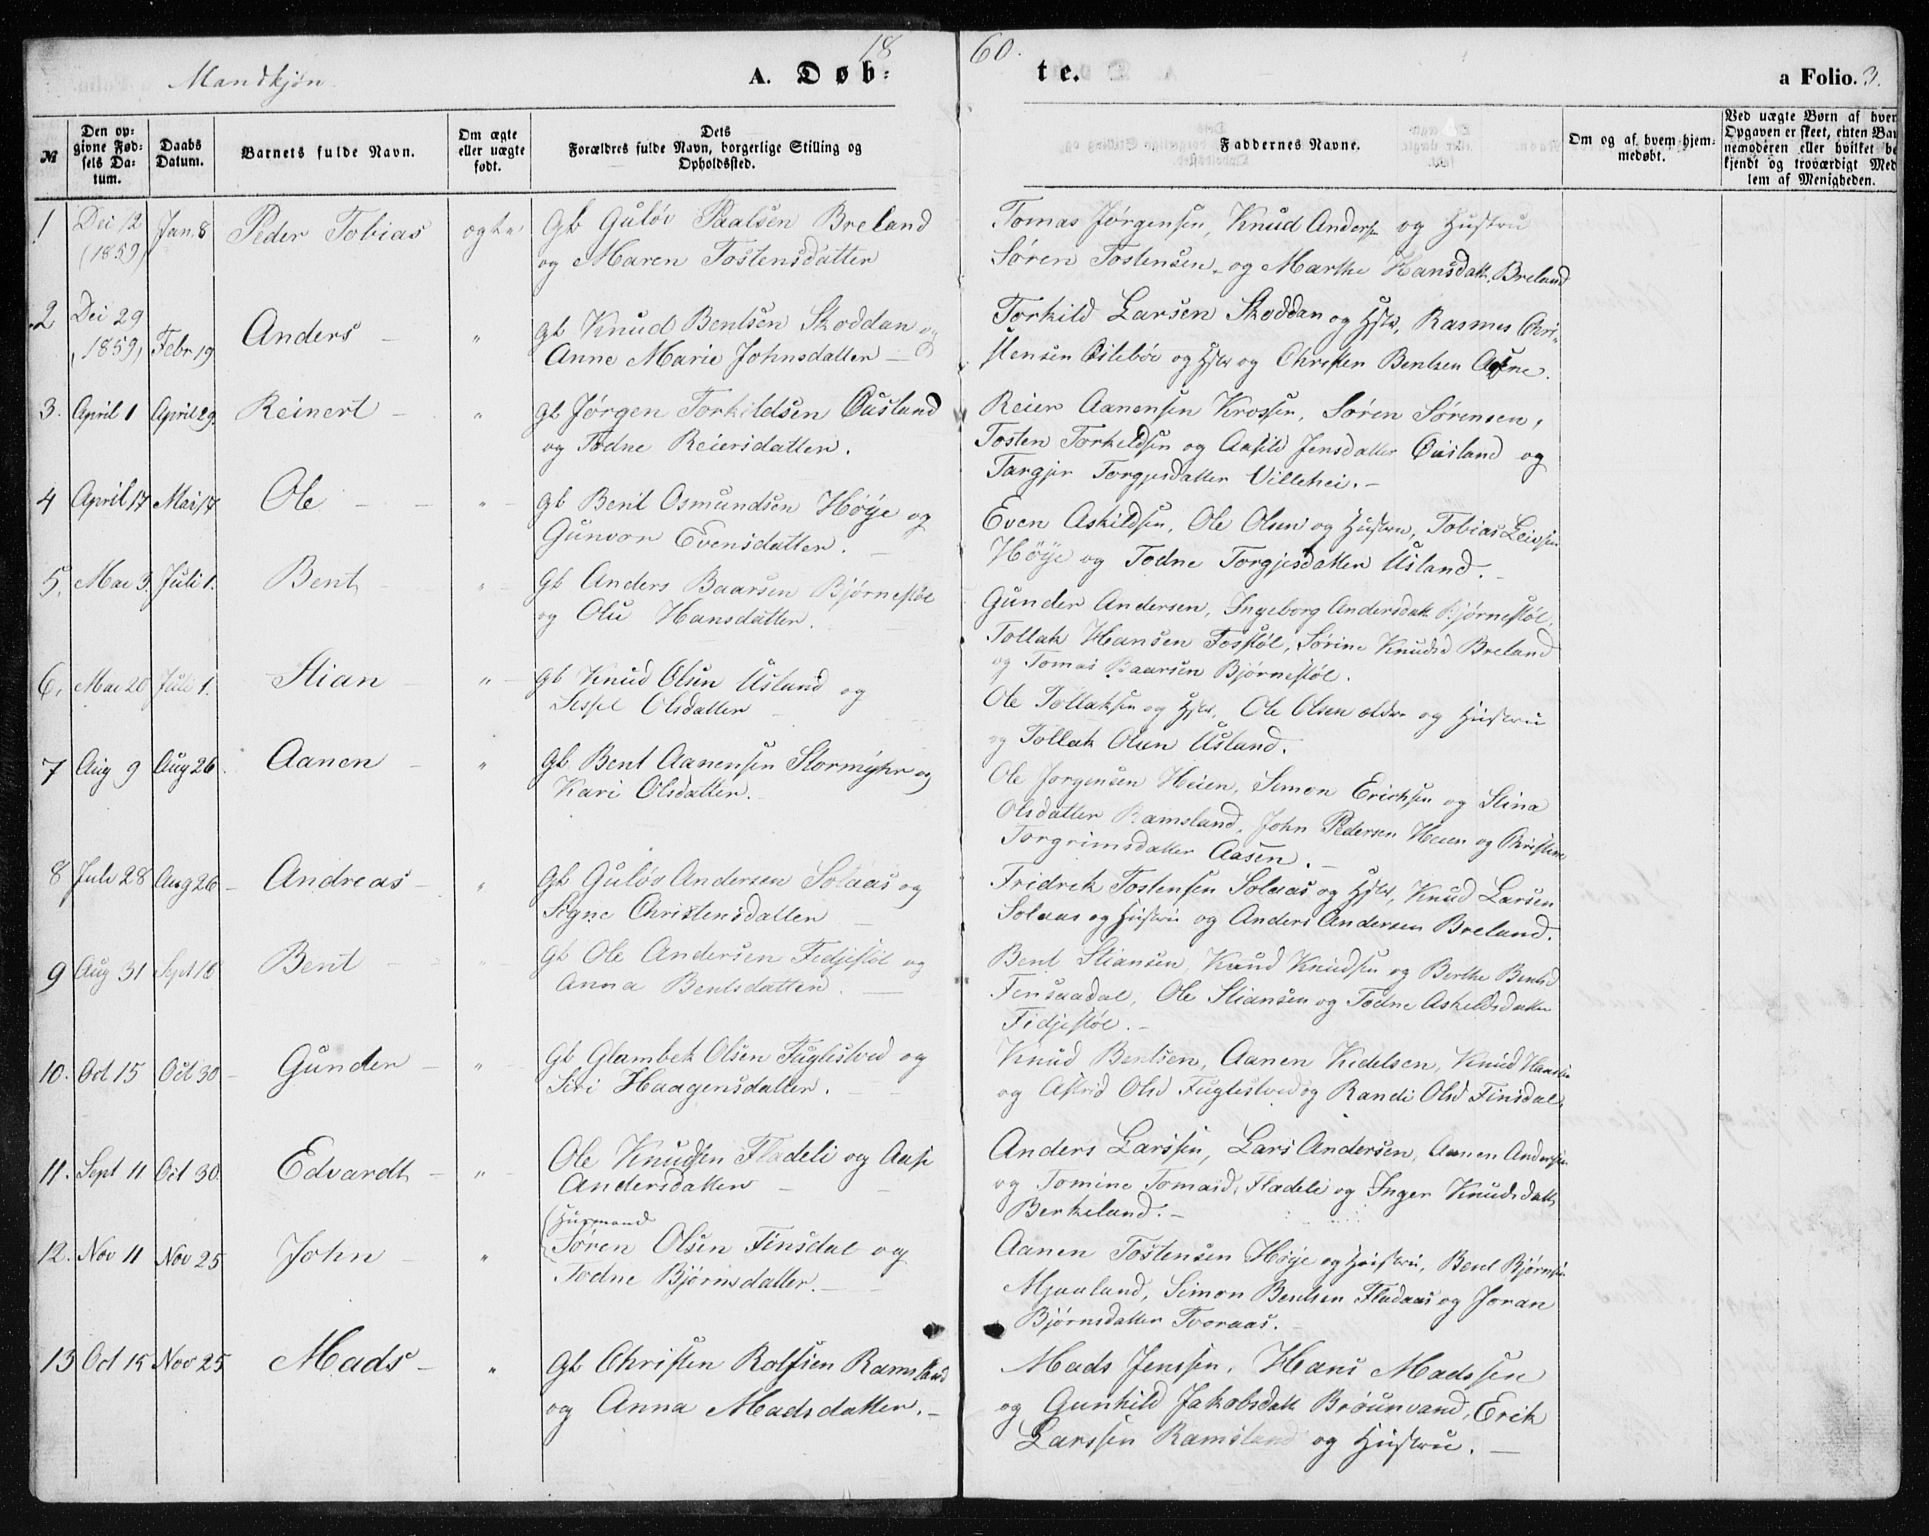 1860.
Mandkjøn.
A. Døb-
te.
a Folio. 3.
№
Den opgivne Fødsels Datum.
Daabs Datum.
Barnets fulde Navn.
Om ægte eller uægte født.
Dets Forældres fulde Navn, borgerlige Stilling og Opholdssted.
Faddernes Navne.
Om og af hvem hjemmedøbt.
Ved uægte Børn af hvem
Opgaven er skeet, enten Bar
nemoderen eller hvilket be
kjendt og troværdigt Med
lem af Menigheden.
1 Dei 12 (1859) Jan 8 Peder Tobias ægte
Gb Guløv Paalsen Breland
og Maren Tostensdatter
Tomas Jørgensen, Knud Anders og Hustru
Søren Tostensen og Marthe Hansdatt. Breland
2 Dei 29 1859, Febr 19 Anders "
gb Knud Bentsen Skoddan og
Anne Marie Johnsdatter
Torkild Larsen Skoddan og Hstr, Rasmus Chri-
stensen Eilebøe og Hstr og Christen Bentsen
3. April 1 April 29. Reinert "
gb Jørgen Torkildsen Øusland
og Todne Reiersdatter.
Reier Aanensen Krossen, Søren Sørensen,
Tosten Torkildsen og Aasild Jensdatter Øusland og
Targjer Torgjusdatter Villehei.
4 April 17 Mai 17 Ole "
gb Bent Osmundsen Høye og
Gunvor Evensdatter.
Even Askildsen, Ole Olsen og Hustru, Tobias Leivsen
Høye og Todne Torgjusdatter Usland.
5. Mai 3. Juli 1. Bent "
Gb Anders Baarsen Bjørnestøl
og Olu Hansdatter.
Gunder Andersen, Ingeborg Andersdatt Bjørnestøl,
Tollak Hansen Fosstøl, Sørine Knudsd Breland
og Tomas Baarsen Bjørnestøl.
6. Mai 20 Juli 1. Stian "
gb Knud Olsen Usland og
Sissel Olsdatter
Ole Tollaksen og Hstr, Ole Olsen ældre og Hustru
og Tollak Olsen Usland.
7 Aug 9 Aug 26. Aanen "
Gb Bent Aanensen Stormyhr og
Kari Olsdatter.
Ole Jorgensen Heien, Simon Erichsen og Stina
Olsdatter Ramsland, John Pedersen Heien og Christine
Torgrimsdatter Aasen.
8 Juli 28 Aug 26 Andreas "
Gb Guløv Andersen Solaas og
Signe Christensdatter
Fridrik Tostensen Solaas og Hstr, Knud Larsen
Solaas og Hustru og Anders Andersen Breland.
9 Aug 31 Sept 16 Bent
gb Ole Andersen Fidjestøl og
Anna Bentsdatter.
Bent Stiansen, Knud Knudsen og Berthe Bentsd
Finsaadal, Ole Stiansen og Todne Askeldsdatter
Fidjestøl.
10. Oct 15 Oct 30 Gunder "
Gb Glambek Olsen Fuglestved og
Siri Haagensdatter.
Knud Bentsen, Aanen Kidelsen, Knud Haavar
og Astrid Olsd Fuglestved og Randi Olsd Finsdal,
11. Sept 11 Oct 30. Edvardt "
Ole Knudsen Fladeli og Aase
Andersdatter
Anders Larssen, Lars Andersen, Aanen Andersen
og Tomine Tomasd, Fladeli og Inger Knudsdatt
Berkeland.
12. Nov 11 Nov 25 John "
(Husmand
Søren Olsen Finsdal og
Todne Bjørnsdatter.
Aanen Tostensen Høye og Hustru, Bent Bjørnsen
Mjaaland, Simon Bentsen Fladaas og Joran
Bjørnsdatter Tvoraas.
13 Oct 15 Nov 25 Mads "
Gb Christen Rolfsen Ramsland
og Anna Madsdatter.
Mads Jenssen, Hans Madssen
og Gunhild Jakobsdatt Brøunvand, Erik
Larssen Ramsland og Hustru.